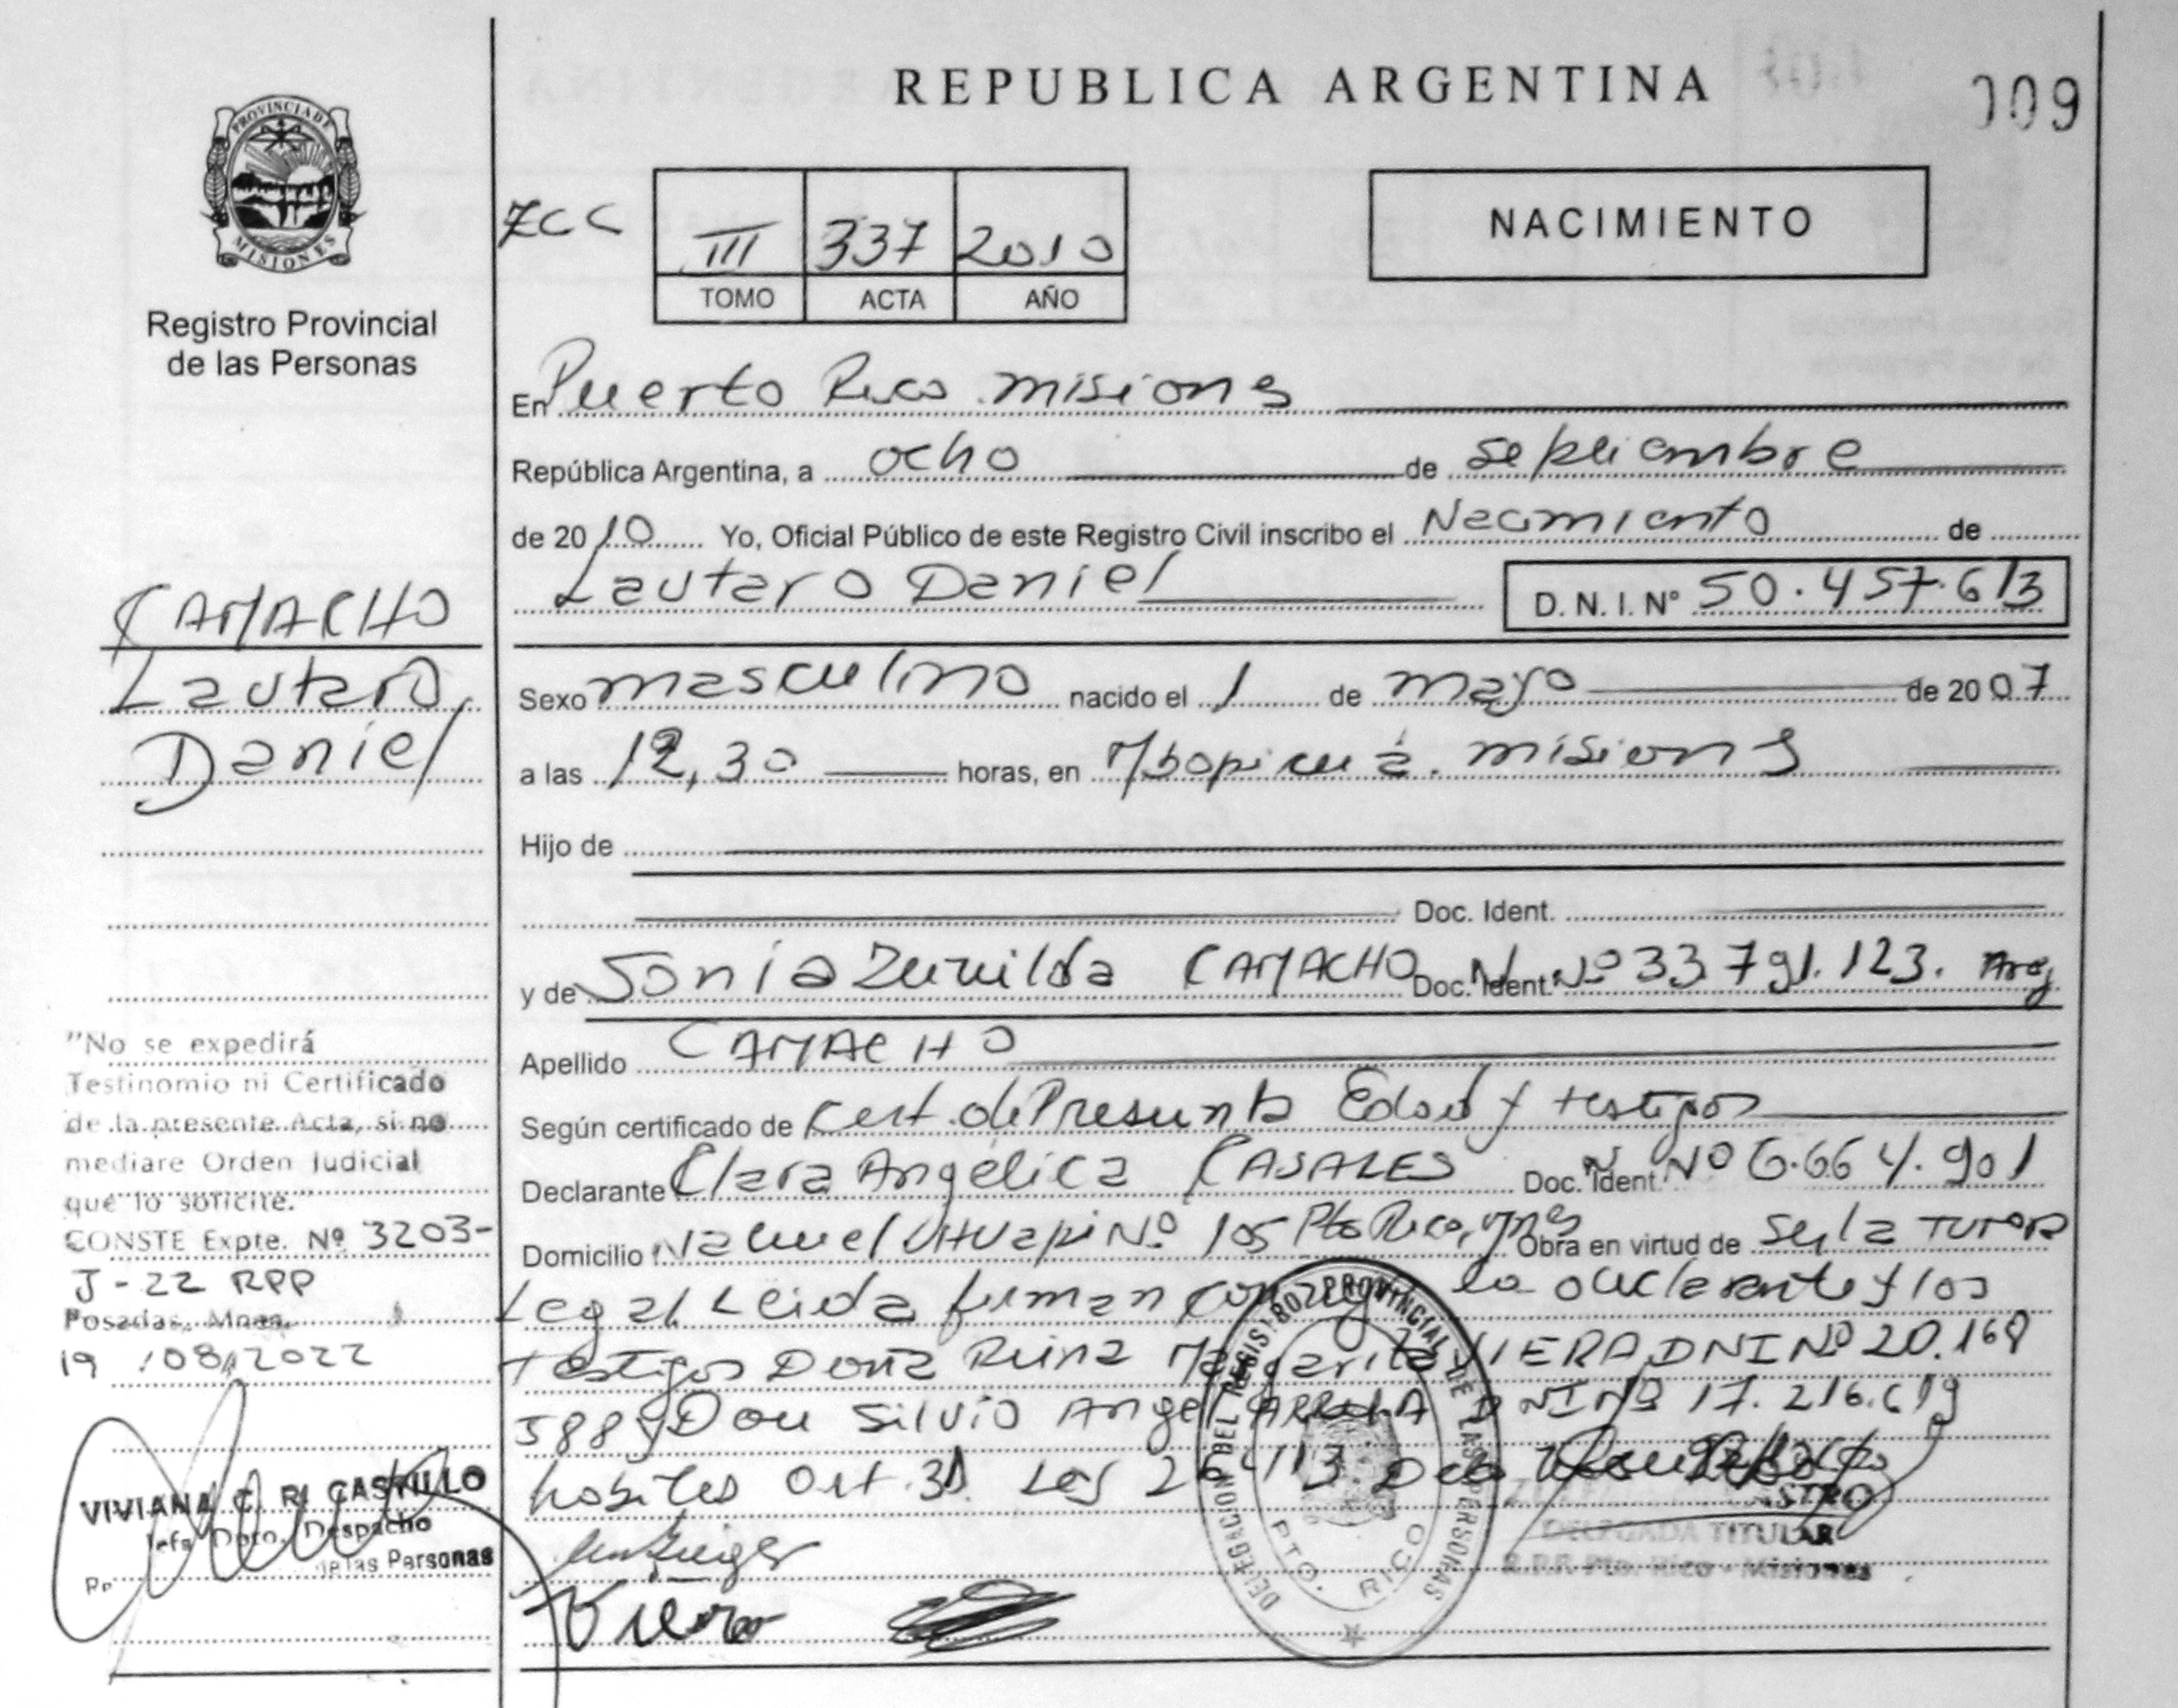 REPUBLICA ARGENTINA
009
PROVINCIA DE
MISIONES
Registro Provincial
de las Personas
III 337 2010
TOMO ACTA AÑO
NACIMIENTO
En Puerto Rico misiones
República Argentina, a ocho de septiembre
de 2010 Yo, Oficial Público de este Registro Civil inscribo el Nacimiento de
Lautaro Daniel D. N. I. Nº 50.457.613
CAMACHO
Lautaro
Daniel
Sexo masculino nacido el 1 de mayo de 2007
a las 12,30 horas, en Mbopicuá. misiones
Hijo de
Doc. Ident.
y de Sonia Zunilda CAMACHO Doc. Ident. Nº 33791.123. Arg
Apellido CAMACHO
Según certificado de Cert. de Presunta Edad y testigos
Declarante Clara Angélica CASALES Doc. Ident. Nº 6.664.901
Domicilio Nahuel Huapi Nº 105 Pto Rico, Mnes Obra en virtud de ser la Tutora
Legal Leida firman conmigo la declarante y los
testigos Doña Reina Margarita VIERA DNI Nº 20.168
588 y Don Silvio Angel DNI Nº 17.216.619
habiles Art. 31 Ley 26413
"No se expedirá
Testinomio ni Certificado
de la presente Acta, si no
mediare Orden Judicial
que lo solicite."
CONSTE Expte. Nº 3203-
J-22 RPP
Posadas, Mnes.
19 /08/2022
VIVIANA C. R. CASTILLO
Jefa Dpto. Despacho
de las Personas
DELEGACION DEL REGISTRO PROVINCIAL DE LAS PERSONAS
PTO. RICO
DELEGADA TITULAR
R.P.P. Pto. Rico - Misiones
Viera